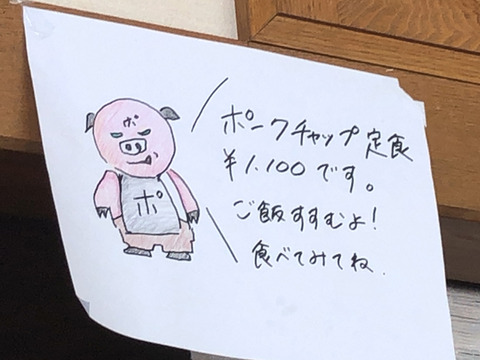 ポ
ポ
ポークチャップ定食
¥1.100です。
ご飯すすむよ!
食べてみてね.